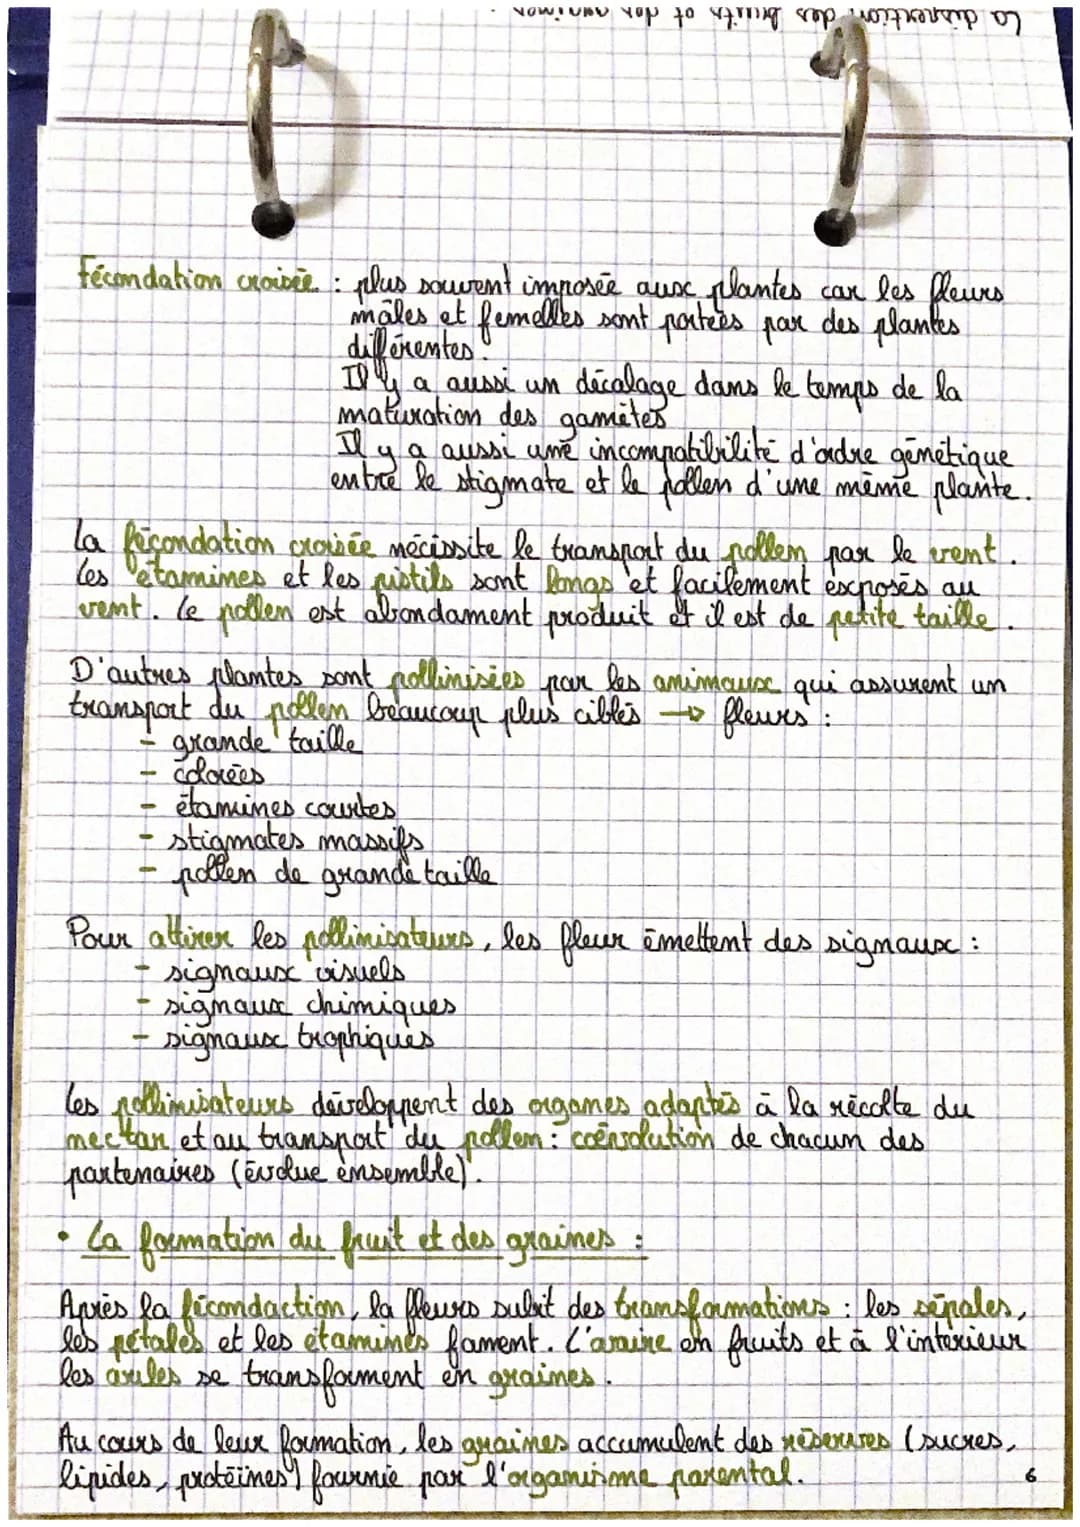 La dispertion des fruits et des graines :
Fécondation croisée : plus souvent imposée aux plantes car les fleurs
mâles et femelles sont portées par des plantes
différentes.
Il y a aussi un décalage dans le temps de la
maturation des gamètes
Il y a aussi une incompatibilité d'ordre génétique
entre le stigmate et le pollen d'une même plante.
La fécondation croisée nécissite le transport du pollen par le vent.
Les étamines et les pistils sont longs et facilement exposés au
vent. Le pollen est abondament produit et il est de petite taille.
D'autres plantes sont pollinisées par les animaux qui assurent un
transport du pollen beaucoup plus ciblés → fleurs :
- grande taille
- colorées
- étamines courtes
- stigmates massifs
- pollen de grande taille
Pour attirer les pollinisateurs, les fleur émettent des signaux :
- signaux visuels
- signaux chimiques
- signaux trophiques
Les pollinisateurs développent des organes adaptés à la récolte du
nectar et au transport du pollen : coévolution de chacun des
partenaires (évolue ensemble).
• La formation du fruit et des graines :
Après la fécondaction, la fleurs subit des transformations : les sépales,
les pétales et les étamines fament. L'ovaire en fruits et à l'intérieur
les ovules se transforment en graines.
Au cours de leur formation, les graines accumulent des réserves (sucres,
lipides, protéines) fournie par l'organisme parental.
6